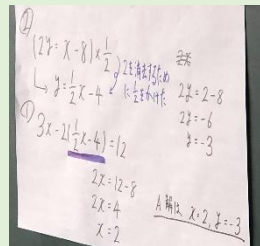 ②
(2y=x-8)×1/2
2を消去するため
に1/2をかけた
↳ y=1/2x-4
①
3x-2(1/2x-4)=12
2x=12-8
2x=4
x=2
2y=2-8
2y=-6
y=-3
A 解は x=2, y=-3